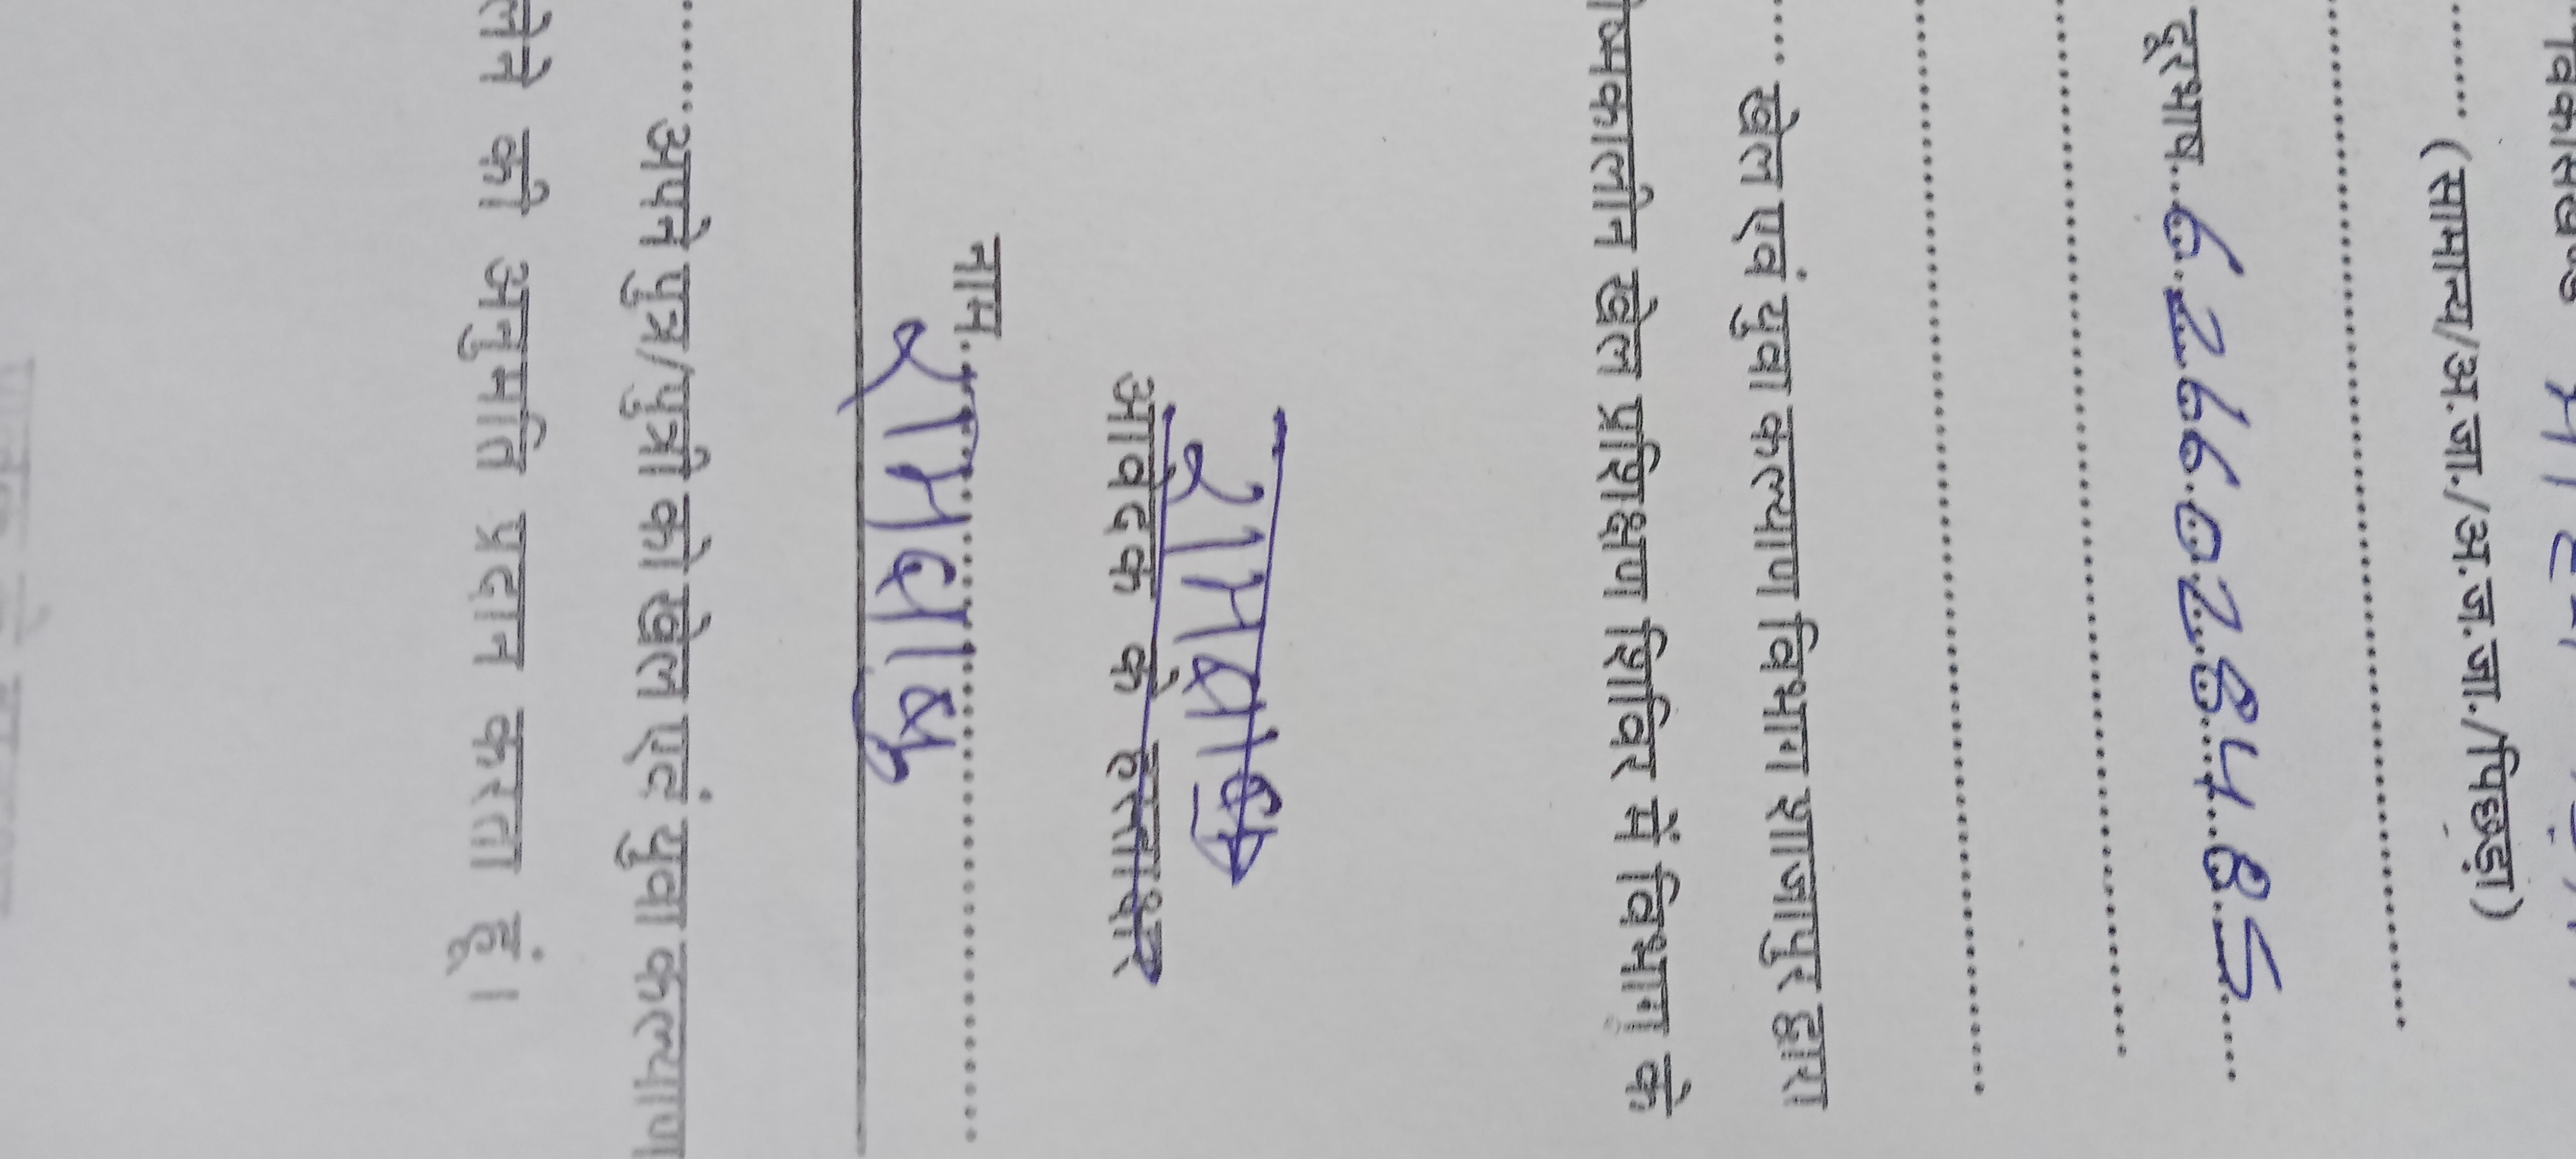 विकासखण्ड
........ (सामान्य/अ.जा./अ.ज.जा./पिछड़ा)
दूरभाष. 6266028485
.... खेल एवं युवा कल्याण विभाग शाजापुर द्वारा
ग्रीष्मकालीन खेल प्रशिक्षण शिविर में विभाग के
आवेदक के हस्ताक्षर
नाम.
........ अपने पुत्र/पुत्री को खेल एवं युवा कल्याण
लेने की अनुमति प्रदान करता हूं।